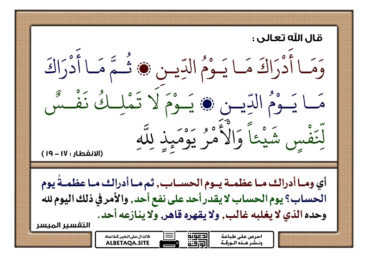 قال الله تعالى :
وَمَا أَدْرَاكَ مَا يَوْمُ الدِّينِ ۞ ثُمَّ مَا أَدْرَاكَ
مَا يَوْمُ الدِّينِ ۞ يَوْمَ لَا تَمْلِكُ نَفْسٌ
لِّنَفْسٍ شَيْئاً وَالْأَمْرُ يَوْمَئِذٍ لِلَّهِ
(الانفطار : ١٧ - ١٩)
أي وما أدراك ما عظمة يوم الحساب، ثم ما أدراك ما عظمةُ يوم
الحساب؟ يوم الحساب لا يقدر أحد على نفع أحد، والأمر في ذلك اليوم لله
وحده الذي لا يغلبه غالب، ولا يقهره قاهر، ولا ينازعه أحد.
التفسير الميسر
احرص على طباعة
ونشر هذه الورقة
فالدال على الخير كفاعله
ALBETAQA.SITE